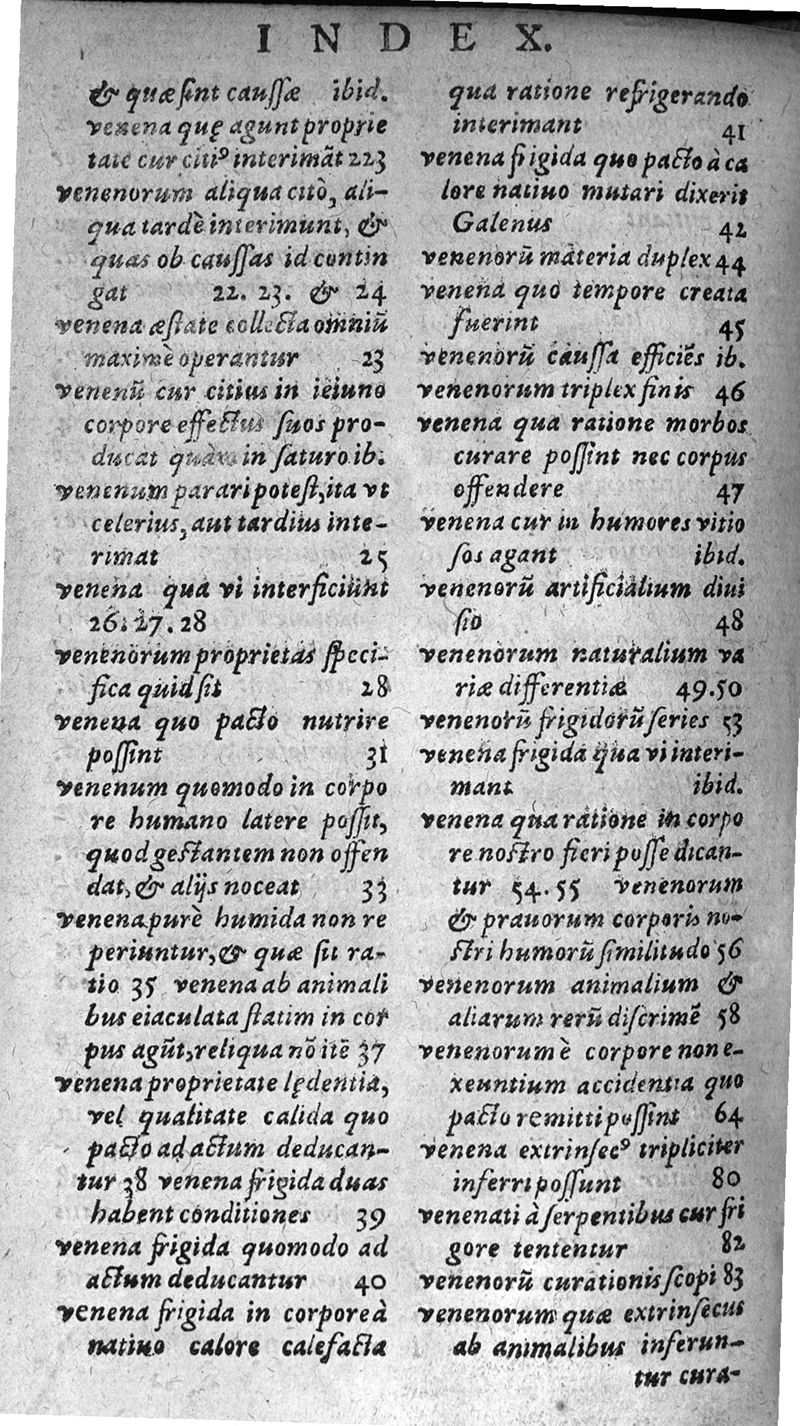 INDEX.
& quæ sint caussæ ibid.
venena quę agunt proprie
tate cur citiꝰ interimãt 223
venenorum aliqua citò, ali-
qua tardè interimunt, &
quas ob caussas id contin
gat 22. 23. & 24
venena æstate collecta omniũ
maximè operantur 23
venenũ cur citius in ieiuno
corpore effectus suos pro-
ducat quàm in saturo ib.
venenum parari potest, ita vt
celerius, aut tardius inte-
rimat 25
venena qua vi interficiunt
26. 27. 28
venenorum proprietas speci-
fica quid sit 28
venena quo pacto nutrire
possint 31
venenum quomodo in corpo
re humano latere possit,
quod gestantem non offen
dat, & alijs noceat 33
venena purè humida non re
periuntur, & quæ sit ra-
tio 35 venena ab animali
bus eiaculata statim in cor
pus agũt, reliqua nõ itẽ 37
venena proprietate lędentia,
vel qualitate calida quo
pacto ad actum deducan-
tur 38 venena frigida duas
habent conditiones 39
venena frigida quomodo ad
actum deducantur 40
venena frigida in corpore à
natiuo calore calefacta
qua ratione refrigerando
interimant 41
venena frigida quo pacto à ca
lore natiuo mutari dixerit
Galenus 42
venenorũ materia duplex 44
venena quo tempore creata
fuerint 45
venenorũ caussa efficiẽs ib.
venenorum triplex finis 46
venena qua ratione morbos
curare possint nec corpus
offendere 47
venena cur in humores vitio
sos agant ibid.
venenorũ artificialium diui
sio 48
venenorum naturalium va
riæ differentiæ 49.50
venenorũ frigidorũ series 53
venena frigida qua vi interi-
mant ibid.
venena qua ratione in corpo
re nostro fieri posse dican-
tur 54.55 venenorum
& prauorum corporis no-
stri humorũ similitudo 56
venenorum animalium &
aliarum rerũ discrimẽ 58
venenorum è corpore non e-
xeuntium accidentia quo
pacto remitti possint 64
venena extrinsecꝰ tripliciter
inferri possunt 80
venenati à serpentibus cur fri
gore tententur 82
venenorũ curationis scopi 83
venenorum quæ extrinsecus
ab animalibus inferun-
tur cura-